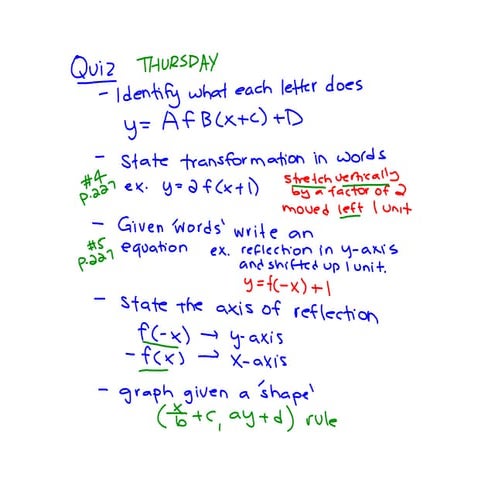 Quiz THURSDAY
- Identify what each letter does
y = A f B(x+c) + D
- State transformation in words
#4 p.227 ex. y = 2f(x+1) stretch vertically by a factor of 2 moved left 1 unit
- Given 'words' write an equation
#5 p.227 ex. reflection in y-axis and shifted up 1 unit.
y = f(-x) + 1
- State the axis of reflection
f(-x) → y-axis
-f(x) → x-axis
- graph given a 'shape'
(x/b + c, ay + d) rule